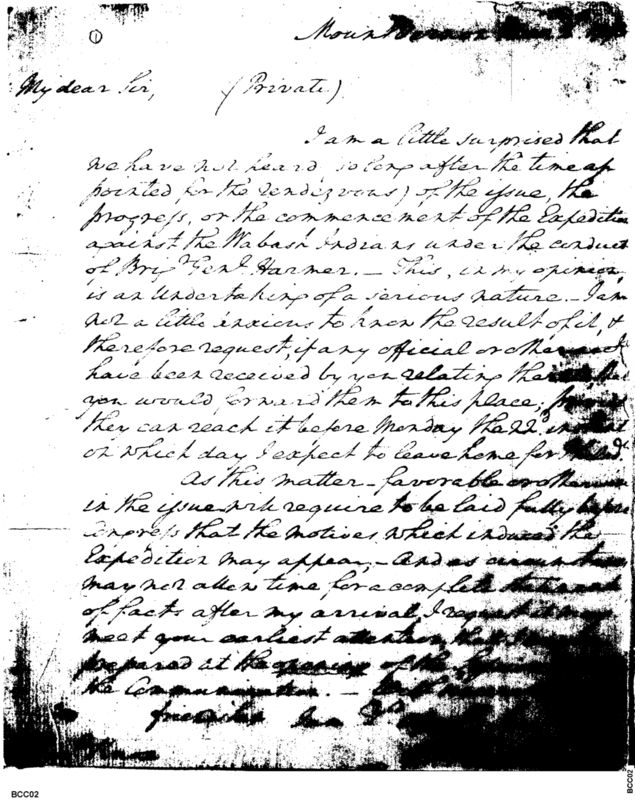 ①
Mount Vernon
My dear Sir, (Private)
I am a little surprised that
we have not heard (so long after the time ap
pointed for the rendezvous) of the issue, the
progress, or the commencement of the Expedition
against the Wabash Indians under the conduct
of Brigr. Genl. Harmer. — This, in my opinion,
is an undertaking of a serious nature. — I am
not a little anxious to know the result of it, &
therefore request, if any official or other
have been received by you relating
you would forward them to this place;
they can reach it before Monday the 22d. instant
on which day I expect to leave home for
As this matter – favorable or otherwise
in the issue – will require to be laid fully before
Congress that the motives which induced the
Expedition may appear; – And as circumstances
may not allow time for a complete
of facts after my arrival, I request it may
meet your earliest attention that
prepared at the opening of the
the Communication. —
friendship I am
BCC02
BCC02